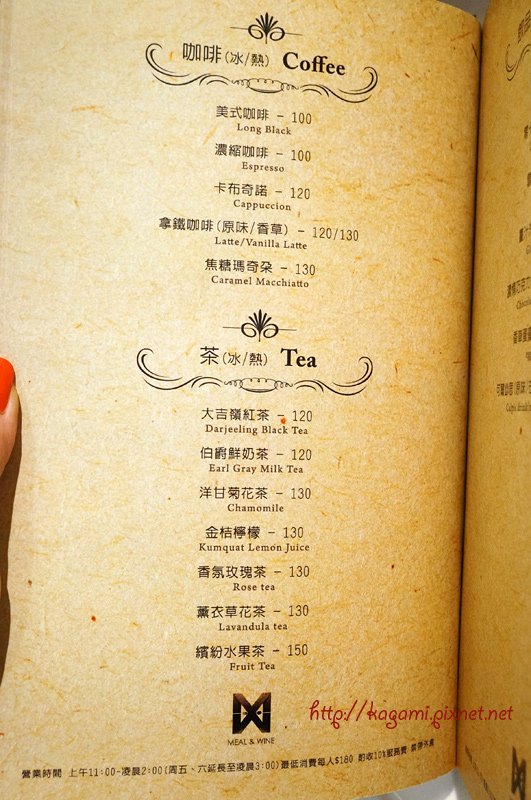 咖啡(冰/熱) Coffee
美式咖啡 - 100
Long Black
濃縮咖啡 - 100
Espresso
卡布奇諾 - 120
Cappuccion
拿鐵咖啡(原味/香草) - 120/130
Latte/Vanilla Latte
焦糖瑪奇朶 - 130
Caramel Macchiatto
茶(冰/熱) Tea
大吉嶺紅茶 - 120
Darjeeling Black Tea
伯爵鮮奶茶 - 120
Earl Gray Milk Tea
洋甘菊花茶 - 130
Chamomile
金桔檸檬 - 130
Kumquat Lemon Juice
香氛玫瑰茶 - 130
Rose tea
薰衣草花茶 - 130
Lavandula tea
繽紛水果茶 - 150
Fruit Tea
MEAL & WINE
http://kagami.pixnet.net
營業時間 上午11:00-凌晨2:00(周五、六延長至凌晨3:00)最低消費每人$180 酌收10%服務費 禁帶外食